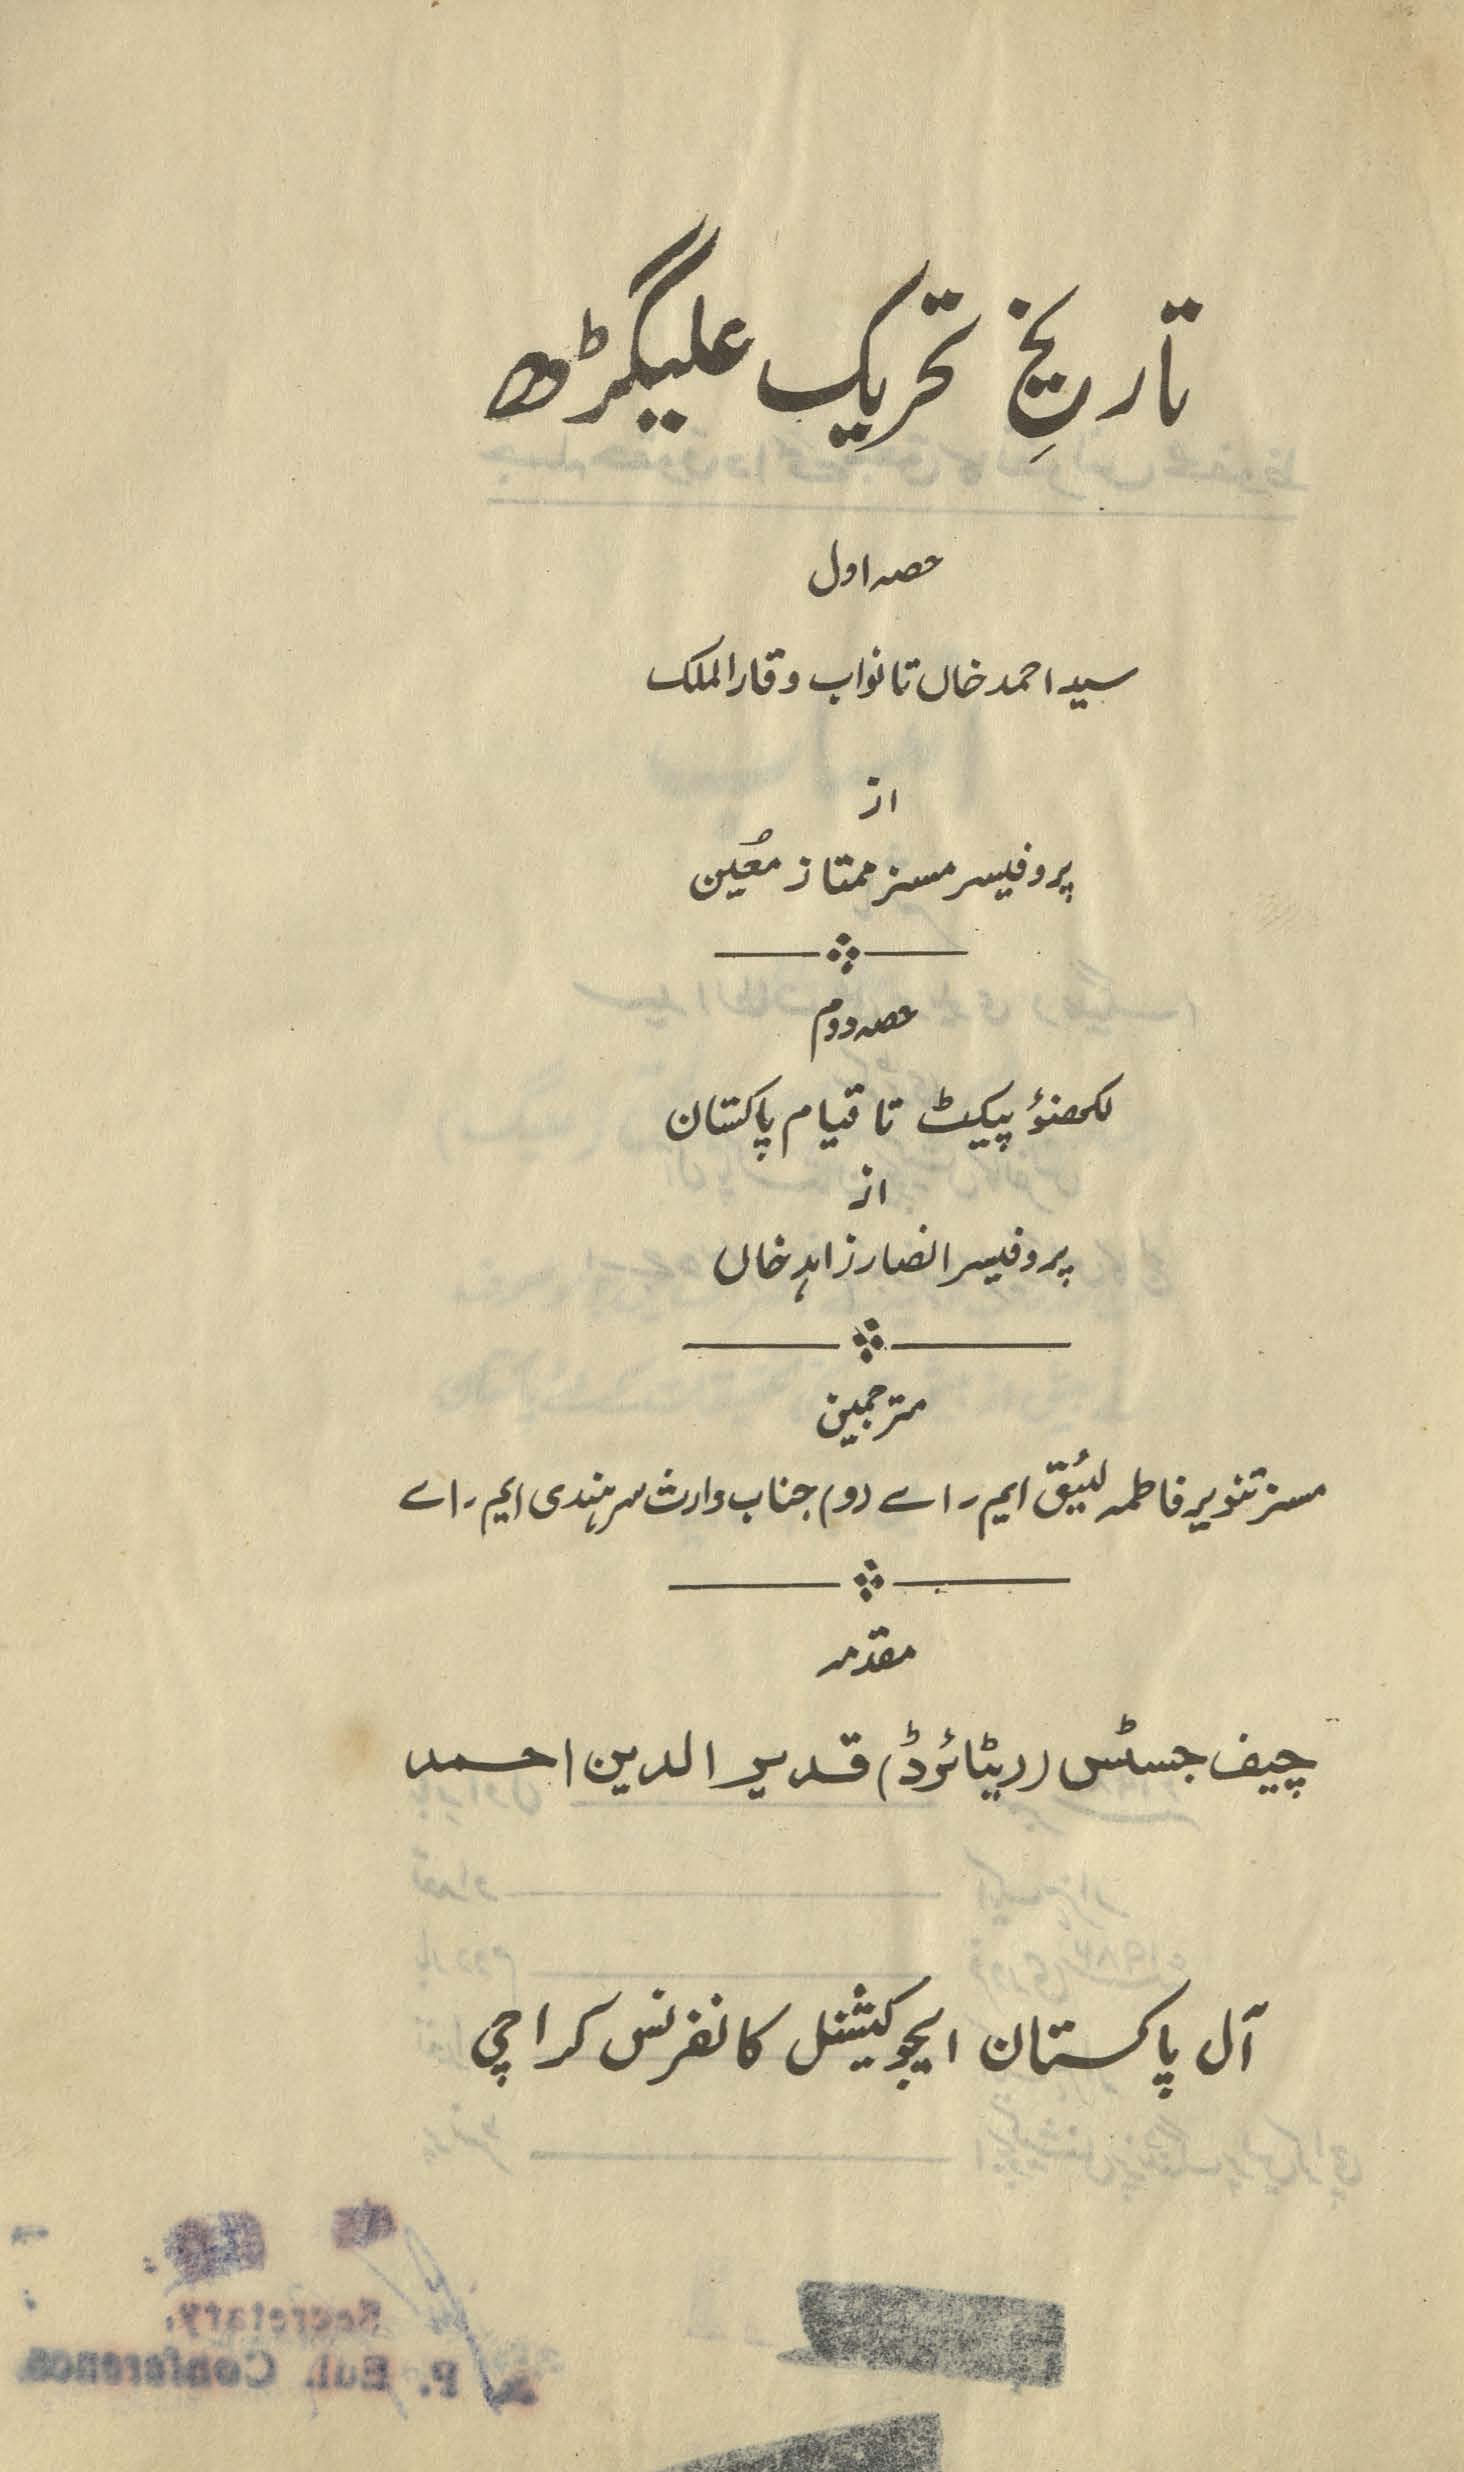 تاریخِ تحریک علیگڑھ
حصہ اول
سید احمد خاں تا نواب وقار الملک
از
پروفیسر مسز ممتاز مُعین
حصہ دوم
لکھنؤ پیکٹ تا قیام پاکستان
از
پروفیسر انصار زاہد خاں
مترجمین
مسز تنویر فاطمہ لئیق ایم ۔ اے (و) جناب وارث سرہندی ایم ۔ اے
مقدمہ
چیف جسٹس (ریٹائرڈ) قدیر الدین احمد
آل پاکستان ایجوکیشنل کانفرنس کراچی
Secretary.
P. Edl. Conference